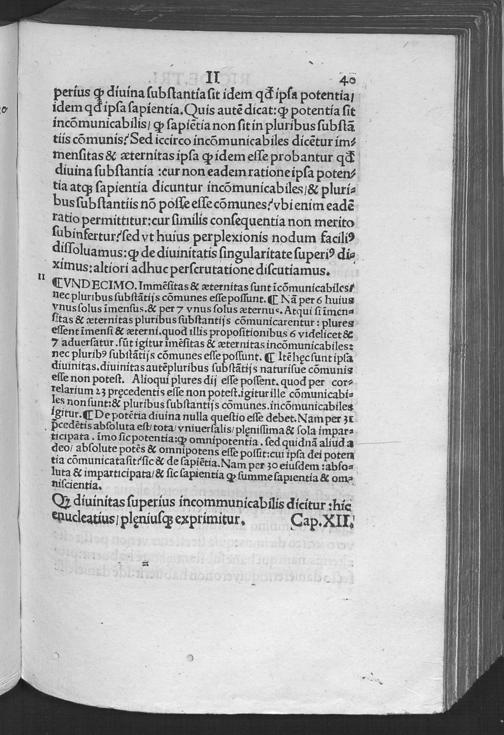 II 40
perius ꝙ diuina substantia sit idem qđ ipsa potentia/
idem qđ ipsa sapientia. Quis autē dicat: ꝙ potentia sit
incōmunicabilis/ ꝙ sapiētia non sit in pluribus substā
tiis cōmunis? Sed iccirco incōmunicabiles dicētur im⸗
mensitas & æternitas ipsa ꝙ idem esse probantur qđ
diuina substantia :cur non eadem ratione ipsa poten⸗
tia atqꝫ sapientia dicuntur incōmunicabiles/& pluri⸗
bus substantiis nō posse esse cōmunes? vbi enim eadē
ratio permittitur: cur similis consequentia non merito
subinfertur? sed vt huius perplexionis nodum faciliꝰ
dissoluamus: ꝙ de diuinitatis singularitate superiꝰ di⸗
ximus: altiori adhuc perscrutatione discutiamus.
11 ¶VNDECIMO. Immēsitas & æternitas sunt īcomunicabiles/
nec pluribus substātijs cōmunes esse possunt. ¶ Nā per 6 huius
vnus solus īmensus. & per 7 vnus solus æternus. Atqui si īmen⸗
sitas & æternitas pluribus substantijs cōmunicarentur: plures
essent īmensi & æterni. quod illis propositionibus 6 videlicet &
7 aduersatur. sūt igitur īmēsitas & æternitas incōmunicabiles:
nec pluribꝰ substātijs cōmunes esse possunt. ¶ Itē hęc sunt ipsa
diuinitas. diuinitas autē pluribus substātijs naturisue cōmunis
esse non potest. Alioqui plures dij esse possent. quod per cor⸗
relarium 23 pręcedentis esse non potest. igitur ille cōmunicabi⸗
les non sunt: & pluribus substantijs cōmunes. incōmunicabiles
igitur. ¶ De potētia diuina nulla questio esse debet. Nam per 31
pcedētis absoluta est/ tota/ vniuersalis/ plęnissima & sola impar⸗
ticipata. imo sic potentia: ꝙ omnipotentia. sed quidnā aliud a
deo/ absolute potēs & omnipotens esse possit: cui ipsa dei poten
tia cōmunicata sit? sic & de sapiētia. Nam per 30 eiusdem: abso⸗
luta & imparticipata/ & sic sapientia ꝙ summe sapientia & om⸗
niscientia.
Qꝫ diuinitas superius incommunicabilis dicitur :hic
enucleatius/ plęniusqꝫ exprimitur. Cap. XII.